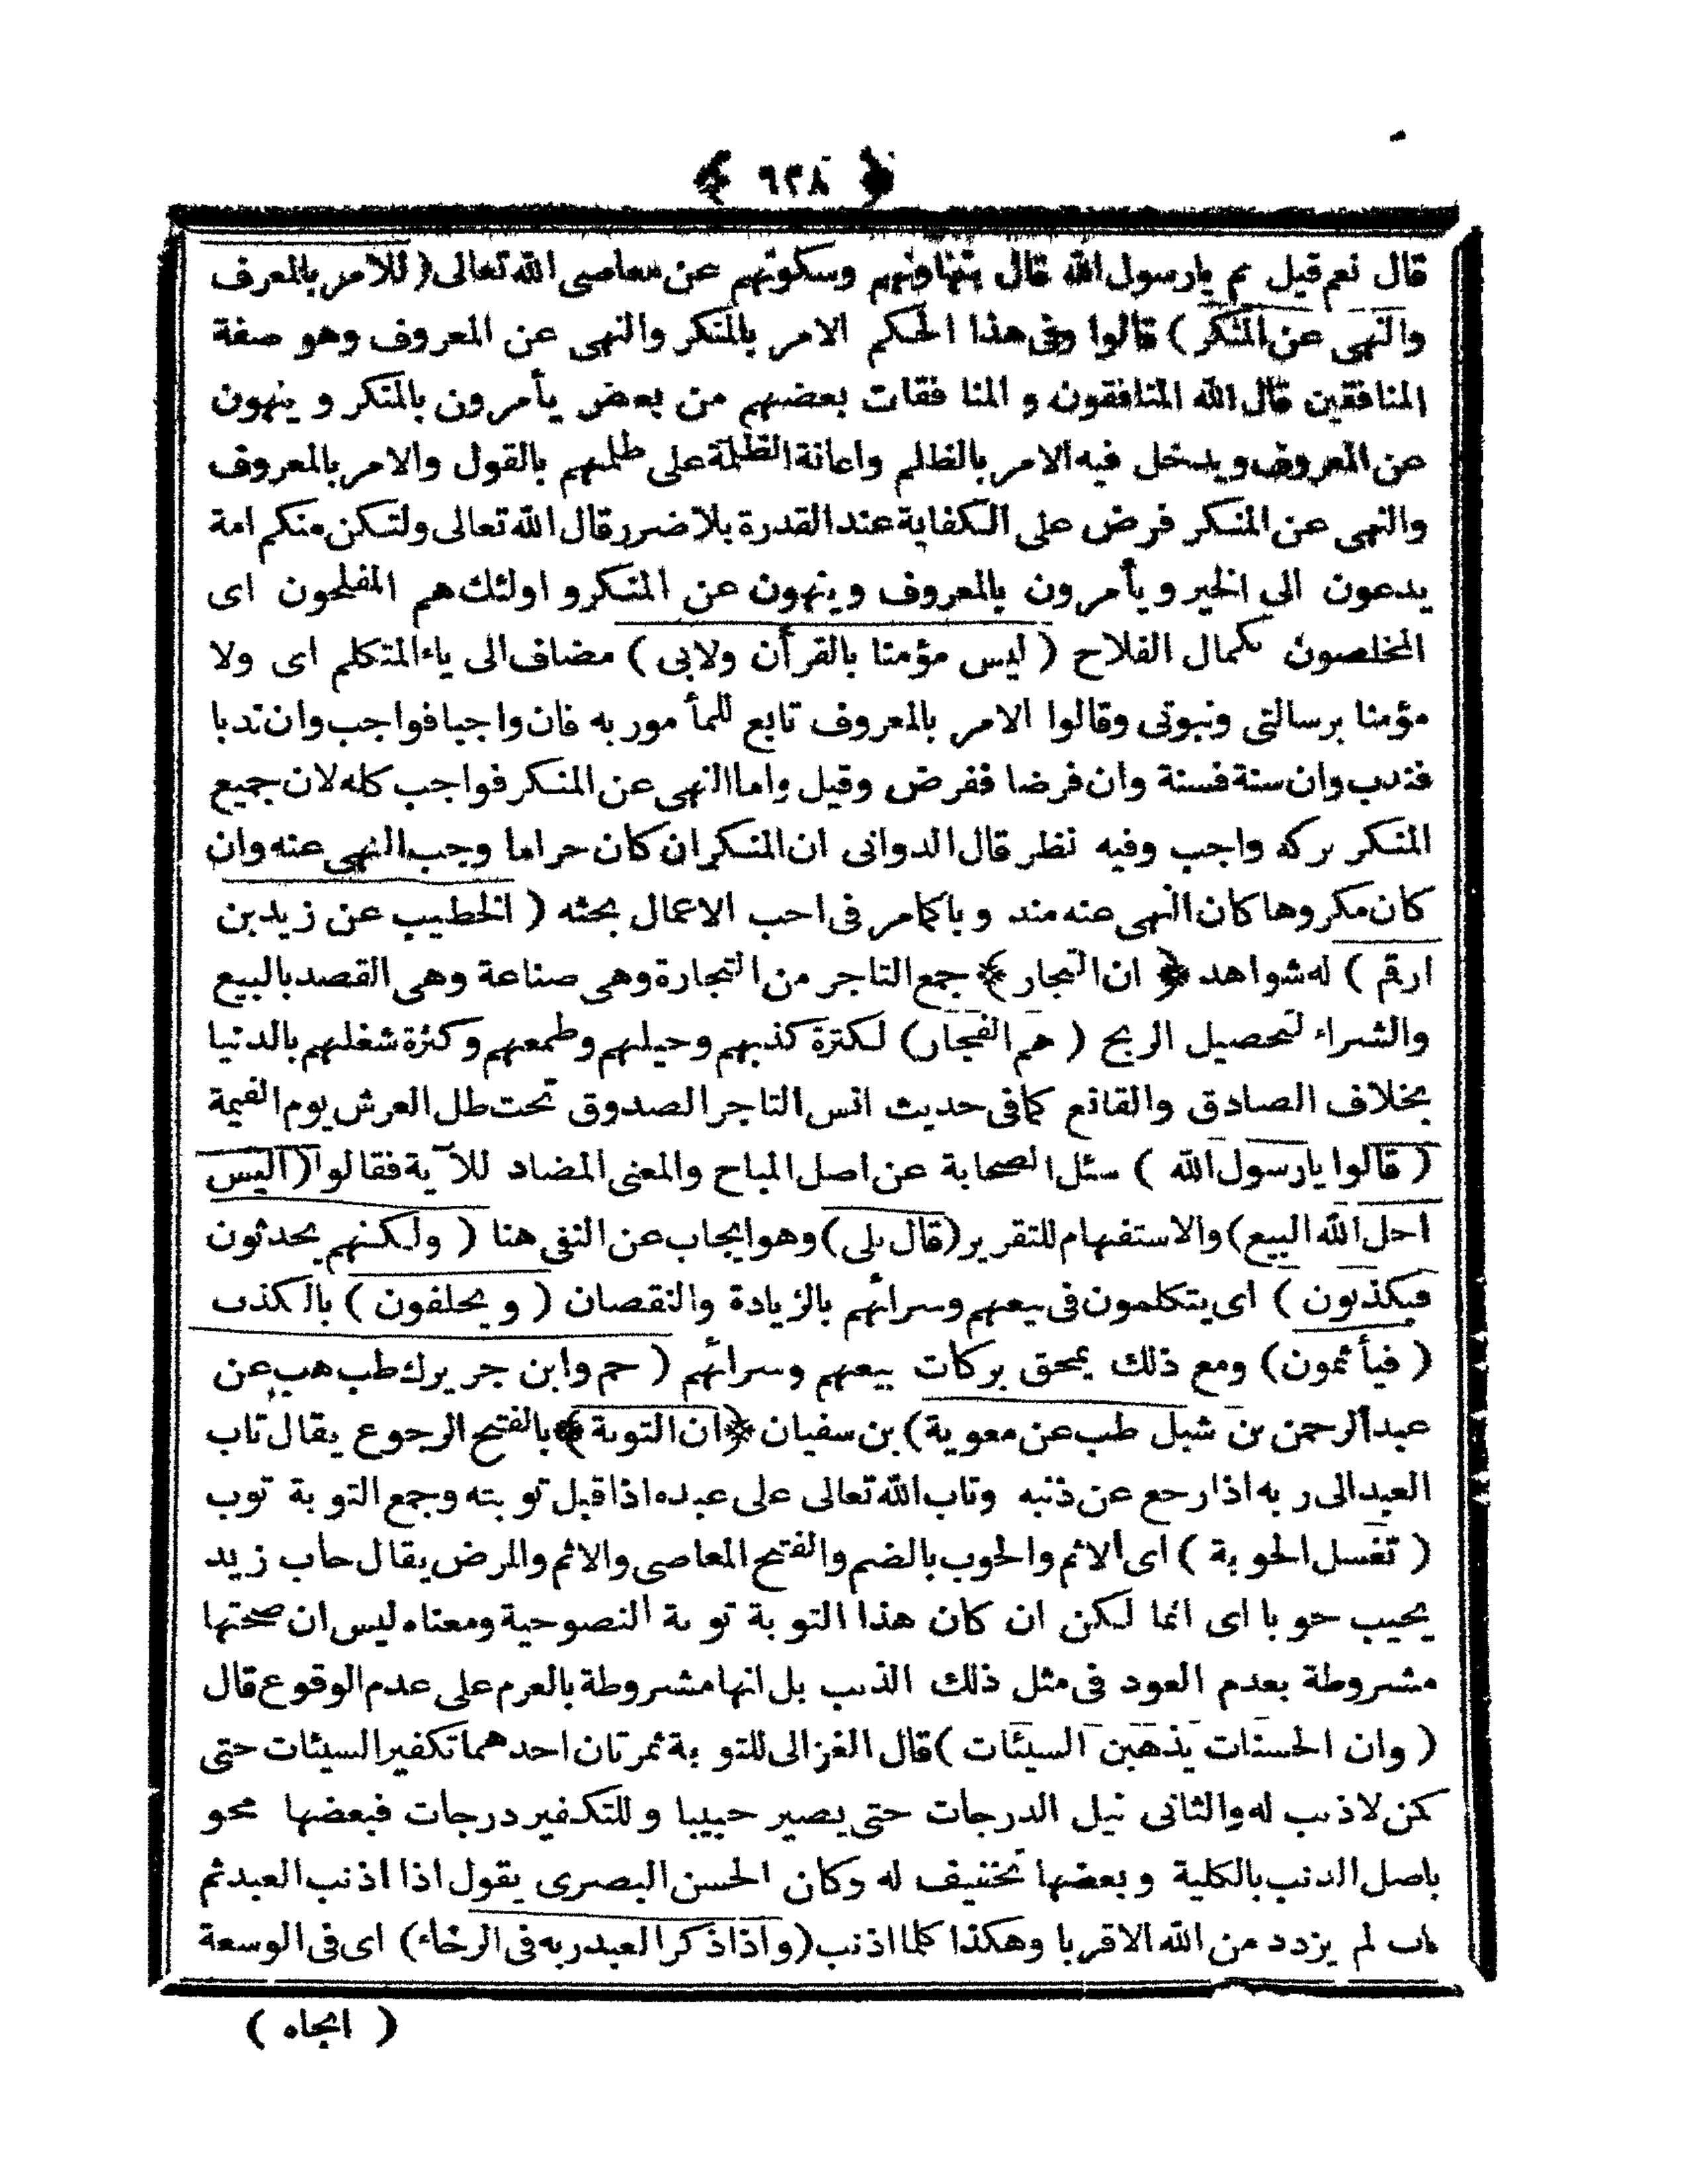 ﴿ ٦٣٨ ﴾
قال نعم قيل بم يارسول الله قال بتهاونهم وسكوتهم عن معاصى الله تعالى ( للامر بالمعرف
والنهى عن المنكر ) قالوا وفى هذا الحكم الامر بالمنكر والنهى عن المعروف وهو صفة
المنافقين قال الله المنافقون و المنا فقات بعضهم من بعض يأمرون بالمنكر و ينهون
عن المعروف ويدخل فيه الامر بالظلم واعانة الظلمة على ظلمهم بالقول والامر بالمعروف
والنهى عن المنكر فرض على الكفاية عند القدرة بلا ضرر قال الله تعالى ولتكن منكم امة
يدعون الى الخير و يأمرون بالمعروف وينهون عن المنكر و اولئك هم المفلحون اى
المخلصون بكمال الفلاح ( ليس مؤمنا بالقرأن ولابى ) مضاف الى ياء المتكلم اى ولا
مؤمنا برسالتى ونبوتى وقالوا الامر بالمعروف تابع للمأ مور به فان واجبا فواجب وان ندبا
فندب وان سنة فسنة وان فرضا ففرض وقيل واما النهى عن المنكر فواجب كله لان جميع
المنكر تركه واجب وفيه نظر قال الدوانى ان المنكر ان كان حراما وجب النهى عنه وان
كان مكروها كان النهى عنه مند و با كمامر فى احب الاعمال بحثه ( الخطيب عن زيد بن
ارقم ) له شواهد ﴿ ان التجار ﴾ جمع التاجر من التجارة وهى صناعة وهى القصد بالبيع
والشراء لتحصيل الربح ( هم الفجار ) لكثرة كذبهم وحيلهم وطمعهم وكثرة شغلهم بالدنيا
بخلاف الصادق والقانع كمافى حديث انس التاجر الصدوق تحت ظل العرش يوم القيمة
( قالوا يارسول الله ) سئل الصحابة عن اصل المباح والمعنى المضاد للآية فقالوا ( اليس
احل الله البيع ) والاستفهام للتقرير ( قال بلى ) وهو ايجاب عن النفى هنا ( ولكنهم يحدثون
فيكذبون ) اى يتكلمون فى بيعهم وسرائهم بالزيادة والنقصان ( و يحلفون ) بالكذب
( فيأثمون ) ومع ذلك يمحق بركات بيعهم وسرائهم ( حم وابن جرير ك طب هب عن
عبدالرحمن بن شبل طب عن معوية ) بن سفيان ﴿ ان التوبة ﴾ بالفتح الرجوع يقال تاب
العبد الى ر به اذا رجع عن ذنبه وتاب الله تعالى على عبده اذا قبل تو بته وجمع التو بة توب
( تغسل الحو بة ) اى الاثم والحوب بالضم والفتح المعاصى والاثم والمرض يقال حاب زيد
يحيب حو با اى اثما لكن ان كان هذا التو بة تو بة النصوحية ومعناه ليس ان صحتها
مشروطة بعدم العود فى مثل ذلك الذنب بل انها مشروطة بالعزم على عدم الوقوع قال
( وان الحسنات يذهبن السيئات ) قال الغزالى للتو بة ثمرتان احدهما تكفير السيئات حتى
كمن لا ذنب له والثانى نيل الدرجات حتى يصير حبيبا و للتكفير درجات فبعضها محو
باصل الذنب بالكلية و بعضها تخفيف له وكان الحسن البصرى يقول اذا اذنب العبد ثم
تاب لم يزدد من الله الا قربا وهكذا كلما اذنب ( واذا ذكر العبد ربه فى الرخاء ) اى فى الوسعة
( انجاه )